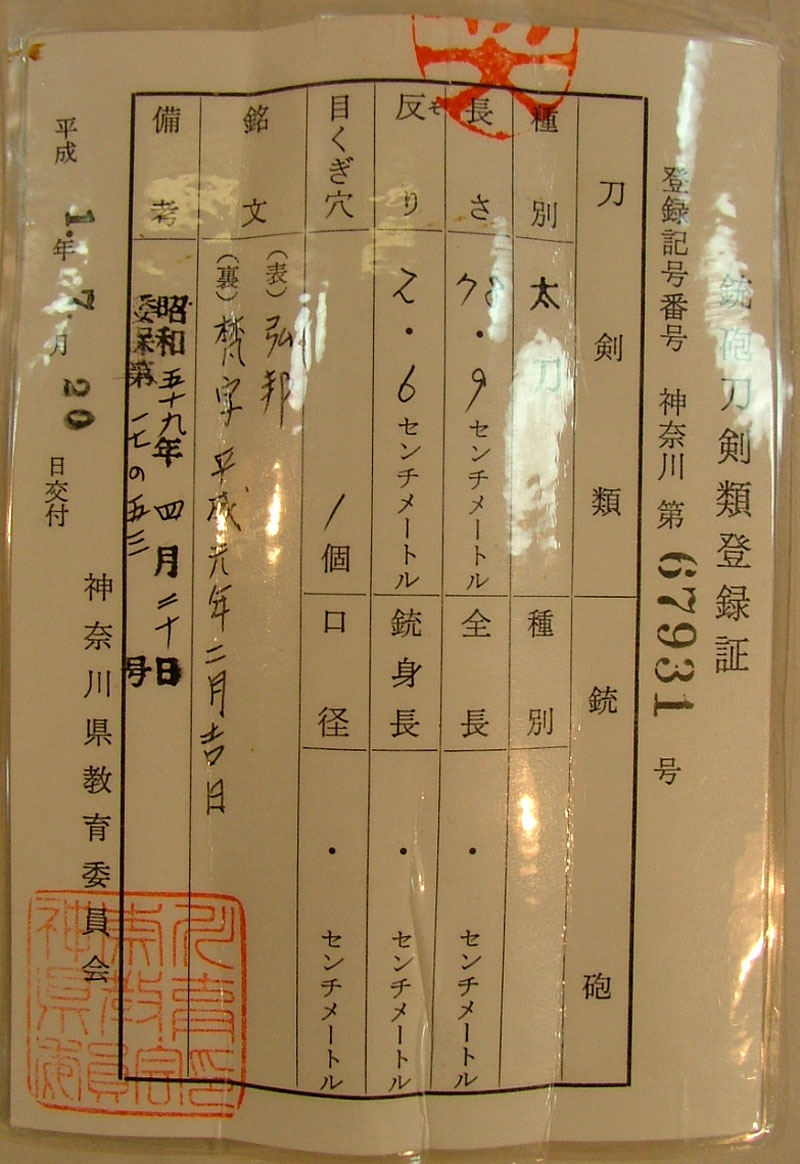 銃砲刀剣類登録証
登録記号番号 神奈川 第 67931 号
刀剣類
銃砲
種別 太刀
種別
長さ 78・9センチメートル
全長 ・ センチメートル
反り 2・6センチメートル
そ
銃身長 ・ センチメートル
目くぎ穴 1個
口径 ・ センチメートル
銘文 (表)弘邦
(裏)梵字 平成元年二月吉日
備考 昭和五十九年 四月二十日
委保第一七の五三号
平成 1.年 7.月 20日交付
神奈川県教育委員会